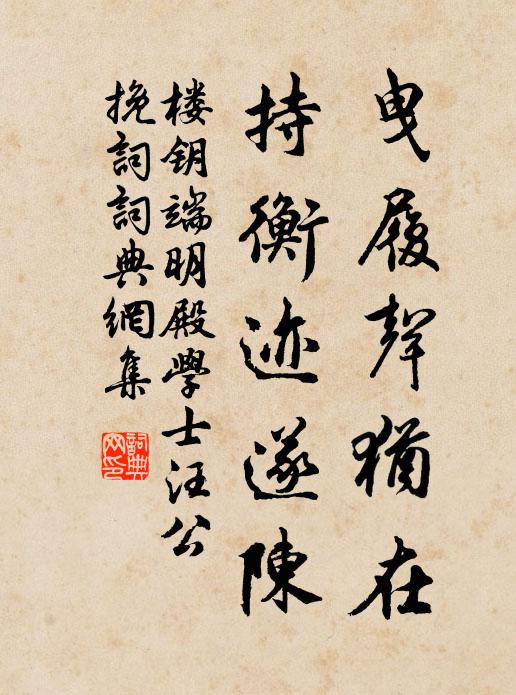 曳履聲猶在
持衡迹遂陳
楼钥端明殿學士汪公
挽詞詞典網集
詞典
网印